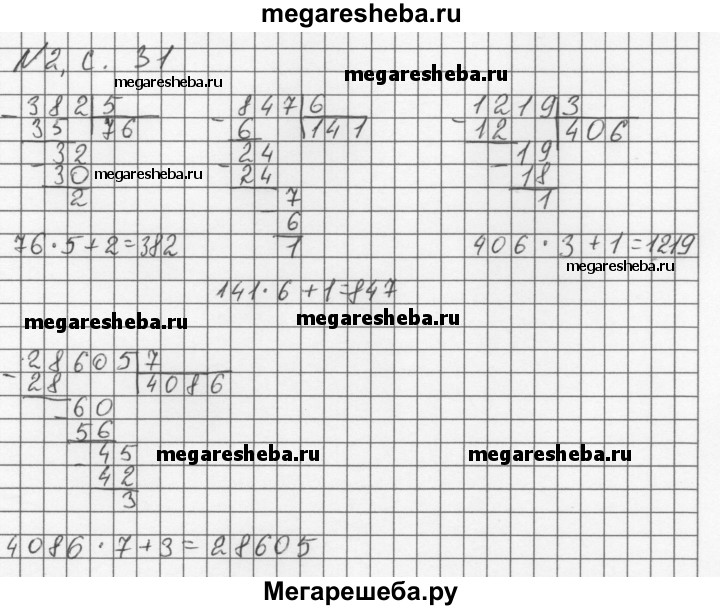 megaresheba.ru
№2, с. 31
megaresheba.ru
megaresheba.ru
382 5
35 76
32
30 megaresheba.ru
2
76 · 5 + 2 = 382
847 6
6 141
24
24
7
6
1
141 · 6 + 1 = 847
1219 3
12 406
19
18
1
406 · 3 + 1 = 1219
megaresheba.ru
megaresheba.ru
megaresheba.ru
28605 7
28 4086
60
56
45
42
3
megaresheba.ru
megaresheba.ru
4086 · 7 + 3 = 28605
Мегарешеба.ру